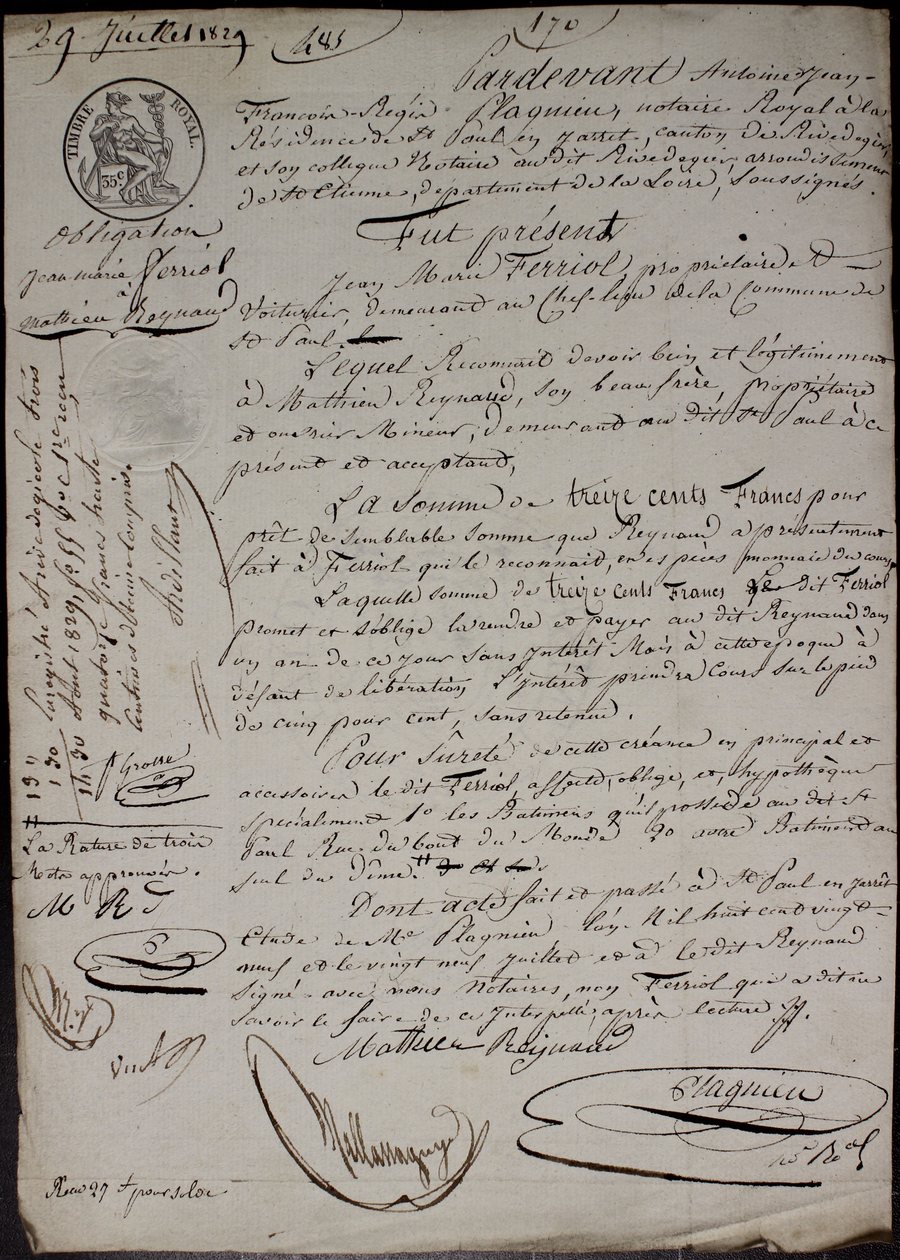 29 Juillet 1829
485
170
TIMBRE ROYAL.
35c
Obligation
Jean marie Ferriol
à
Mathieu Reynaud
Pardevant Antoine Jean-
François-Régis Plagnieu, notaire Royal à la
Résidence de St Paul en Jarret, canton de Rivedegier,
et son collègue Notaire au dit Rivedegier, arrondissement
de St Etienne, département de la Loire, soussignés.
Fut présent
Jean Marie Ferriol, propriétaire et
Voiturier, demeurant au Chef-lieu de la Commune de
St Paul.
Lequel Reconnait devoir bien et légitimement
à Mathieu Reynaud, son beau frère propriétaire
et ouvrier Mineur, demeurant au dit St Paul à ce
présent et acceptant,
La somme de treize cents Francs pour
prêt de semblable somme que Reynaud a présentement
fait à Ferriol qui le reconnait, en espèces monnaie du cours
Laquelle somme de treize cents Francs le dit Ferriol
promet et s'oblige la rendre et payer au dit Reynaud dans
un an de ce jour sans Intérêt. Mais à cette époque à
défaut de libération L'Intérêt prendra Cours sur le pied
de cinq pour cent, sans retenue.
Pour sûreté de cette créance en principal et
accessoires le dit Ferriol, affecte, oblige, et, hypothèque
spécialement 1o les Batimens qu'il possède au dit St
Paul Rue du bout du Monde 2o autre Batiment au
suel du dîme.
Dont acte fait et passé à St Paul en Jarrêt
Etude de Me Plagnieu L'an Mil huit cent vingt-
neuf et le vingt neuf juillet et a le dit Reynaud
signé avec nous Notaires, non Ferriol qui a dit ne
savoir le faire de ce Interpellé, après lecture
Mathieu Reynaud
Plagnieu
Enregistré à Rivedegier le trois
Aout 1829, fo 55 Vo C 1re reçu
quatorze francs trente
Centimes dixième Compris.
13 "
1 30
14 30
Grosse
La Rature de trois
Mots approuvée.
M R
P